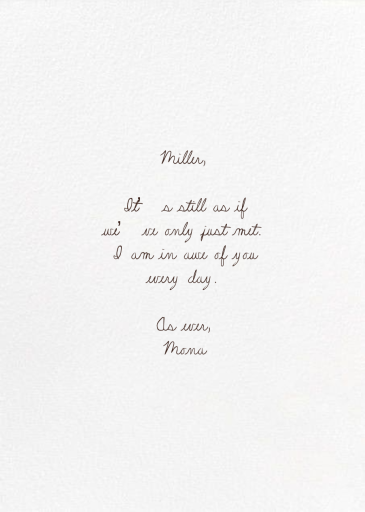 Miller,
It s still as if
we' ve only just met.
I am in awe of you
every day.
As ever,
Mona